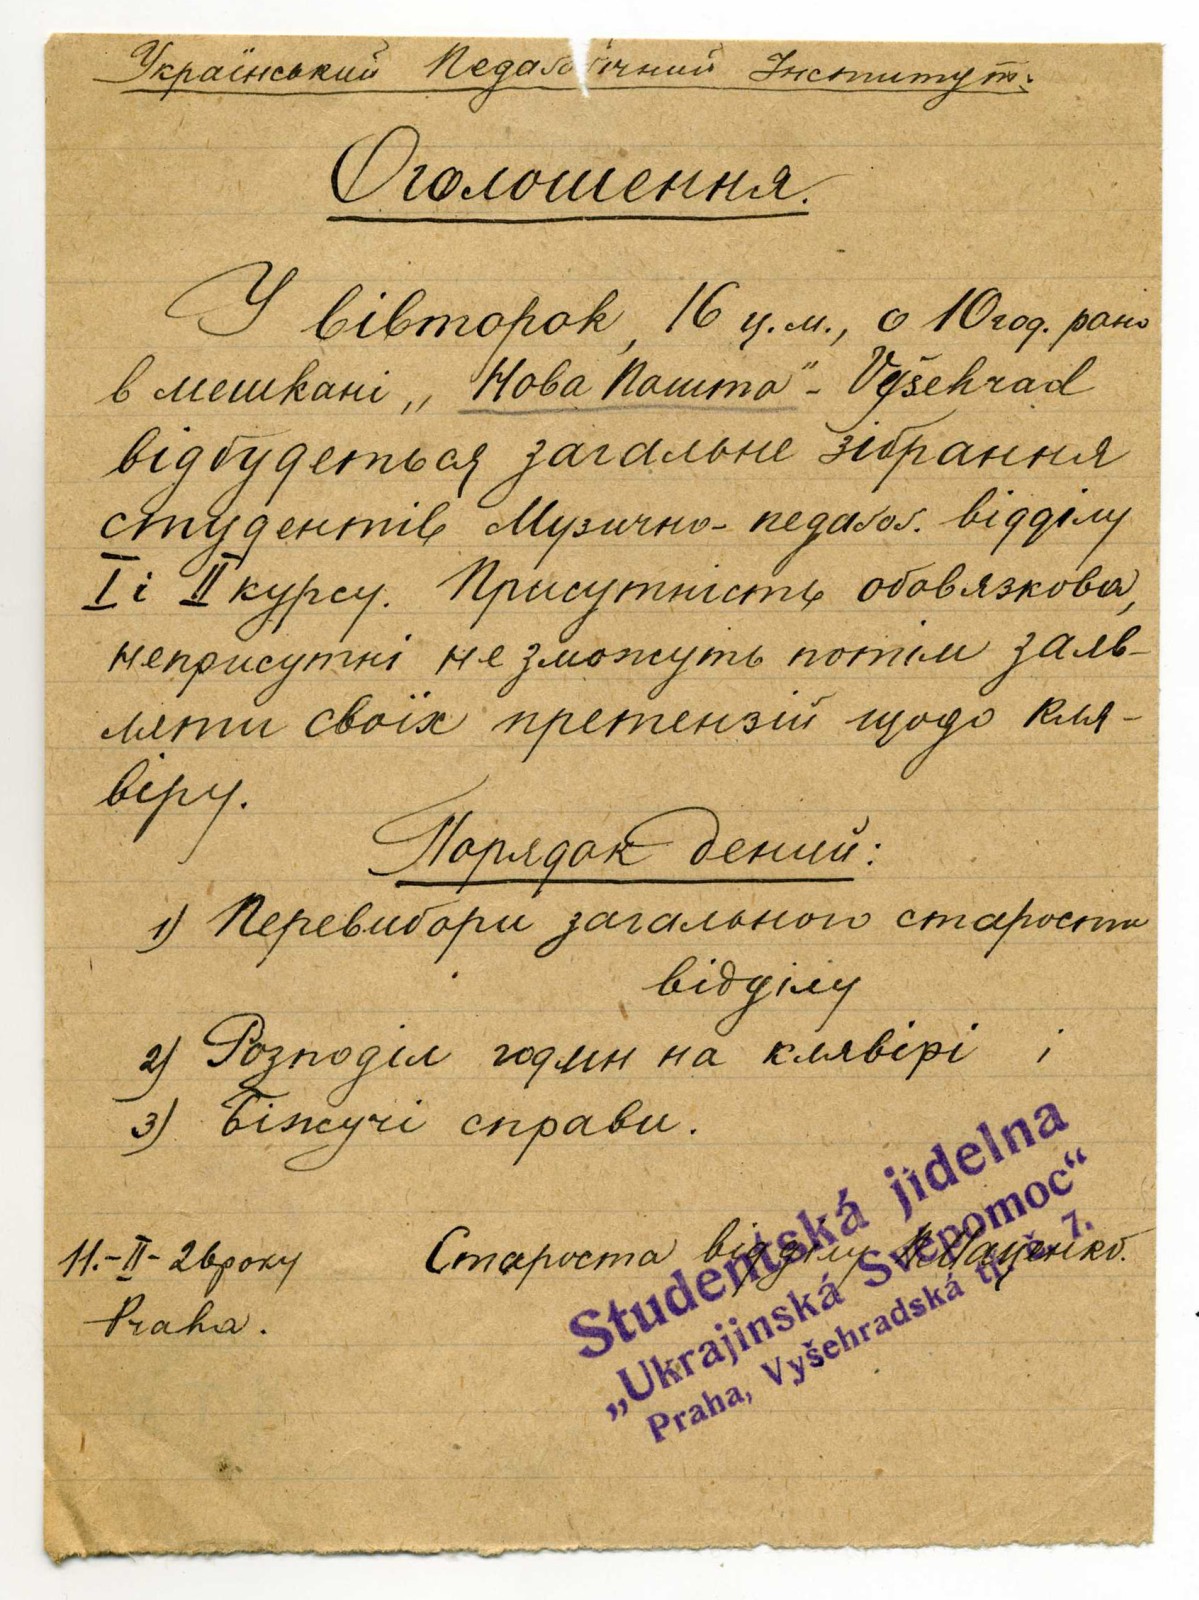 Український Педаґоґічний Інститут.
Оголошення.
У вівторок, 16 ц.м., о 10 год. рано
в мешкані „Нова Пошта" - Vyšehrad
відбудеться загальне зібрання
студентів Музично-педаґоґ. відділу
I і II курсу. Присутність обовязкова,
неприсутні не зможуть потім заяв-
ляти своїх претензій щодо кля-
віру.
Порядок денний:
1) Перевибори загального старости
відділу
2) Розподіл годин на клявірі і
3) Біжучі справи.
11.-II-26 року Староста відділу П. Маценко.
Praha.
Studentská jídelna
„Ukrajinská Svépomoc“
Praha, Vyšehradská tř. č. 7.